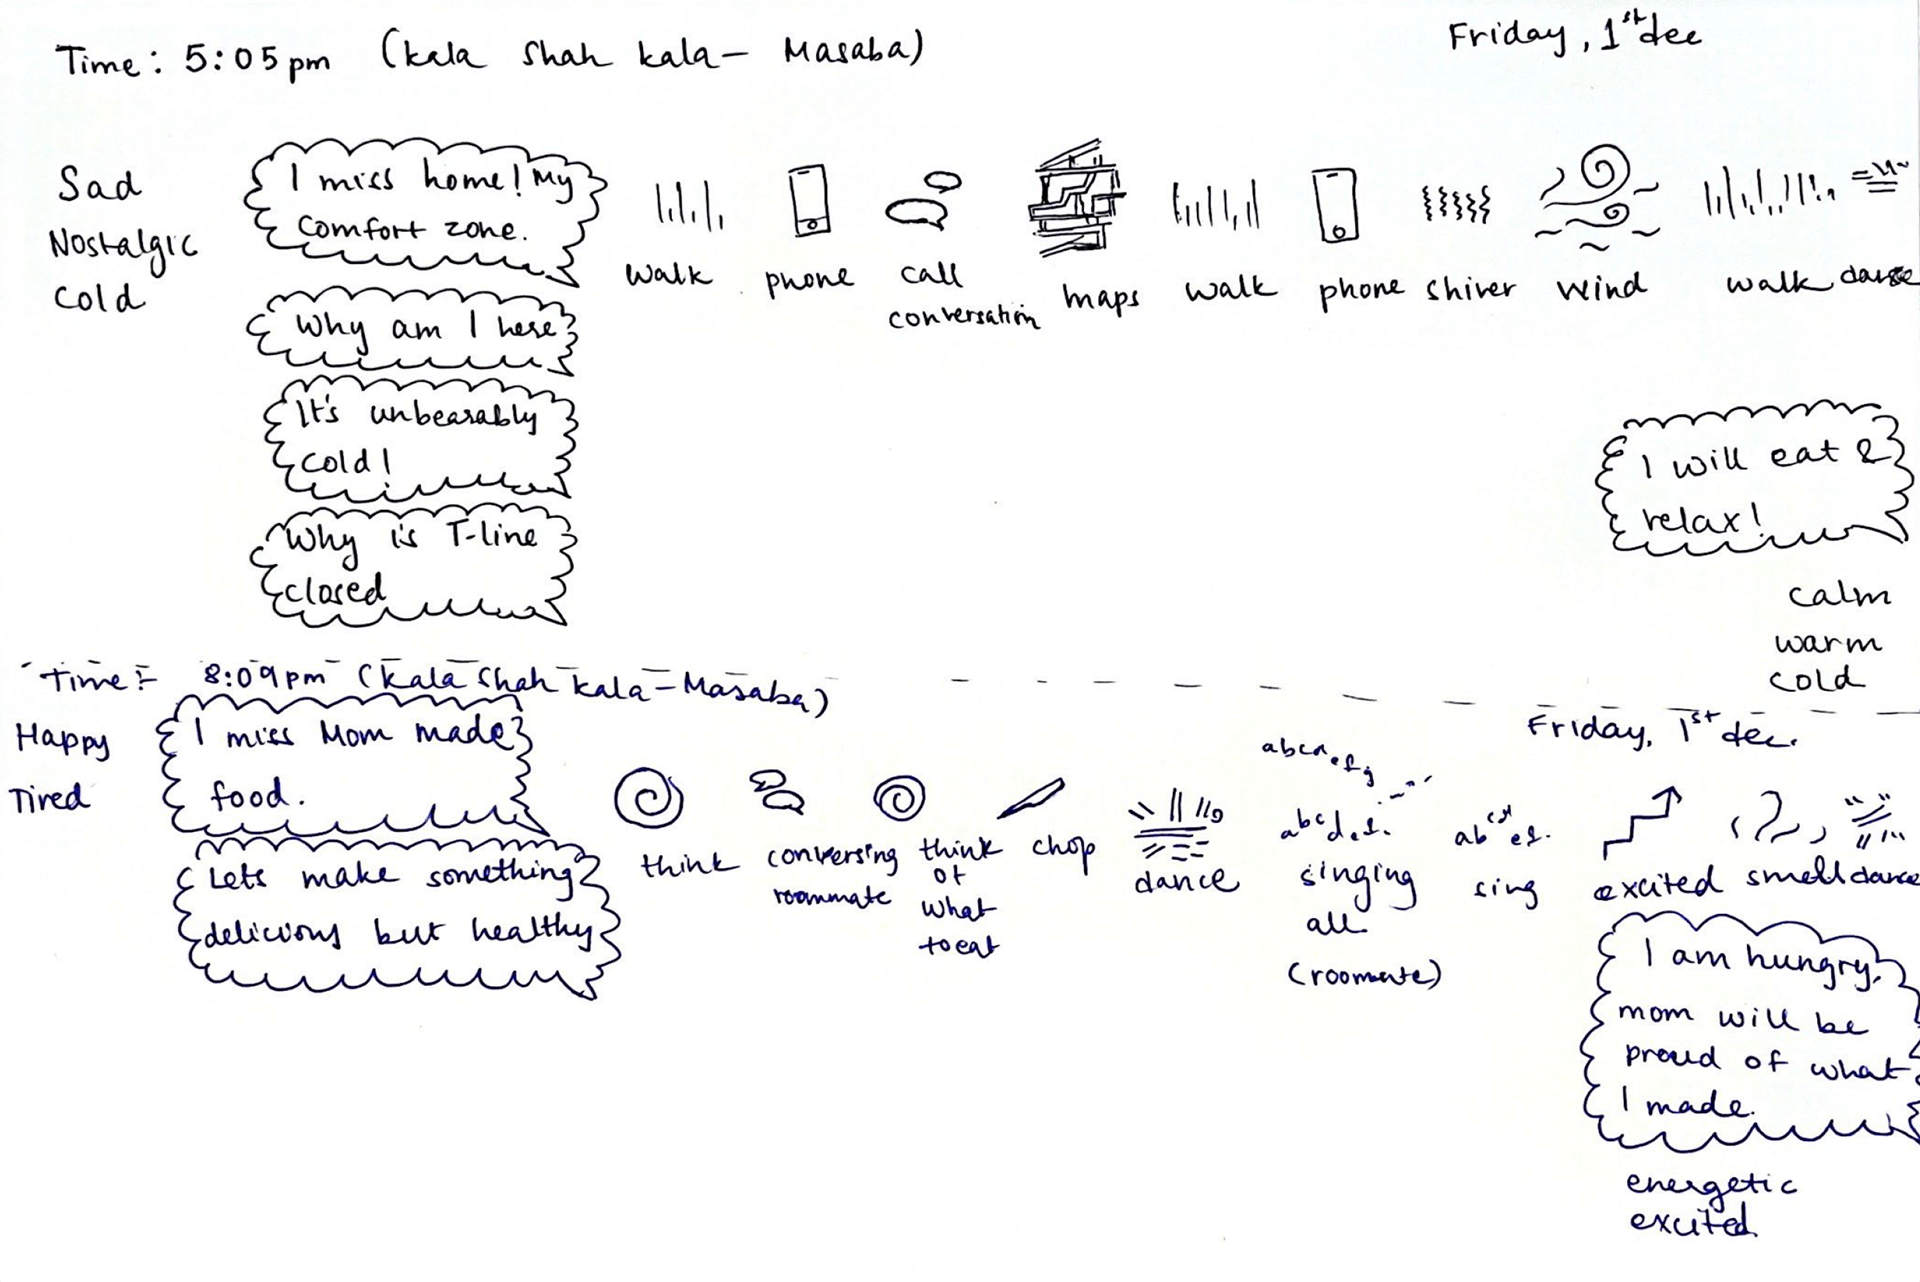 Time: 5:05pm (kala shah kala- Masaba)
Friday, 1st dec
Sad
Nostalgic
cold
I miss home! My
comfort zone.
Why am I here?
It's unbearably
cold!
Why is T-line
closed
walk
phone
call
conversation
maps
walk
phone
shiver
wind
walk
dance
I will eat &
relax!
calm
warm
cold
Time:- 8:09pm (kala shah kala-Masaba)
Friday, 1st dec.
Happy
Tired
I miss Mom made
food.
Lets make something
delicious but healthy
think
conversing
roommate
think
of
what
to eat
chop
dance
singing
all
(roommate)
sing
excited
smell
dance
I am hungry,
mom will be
proud of what
I made.
energetic
excited